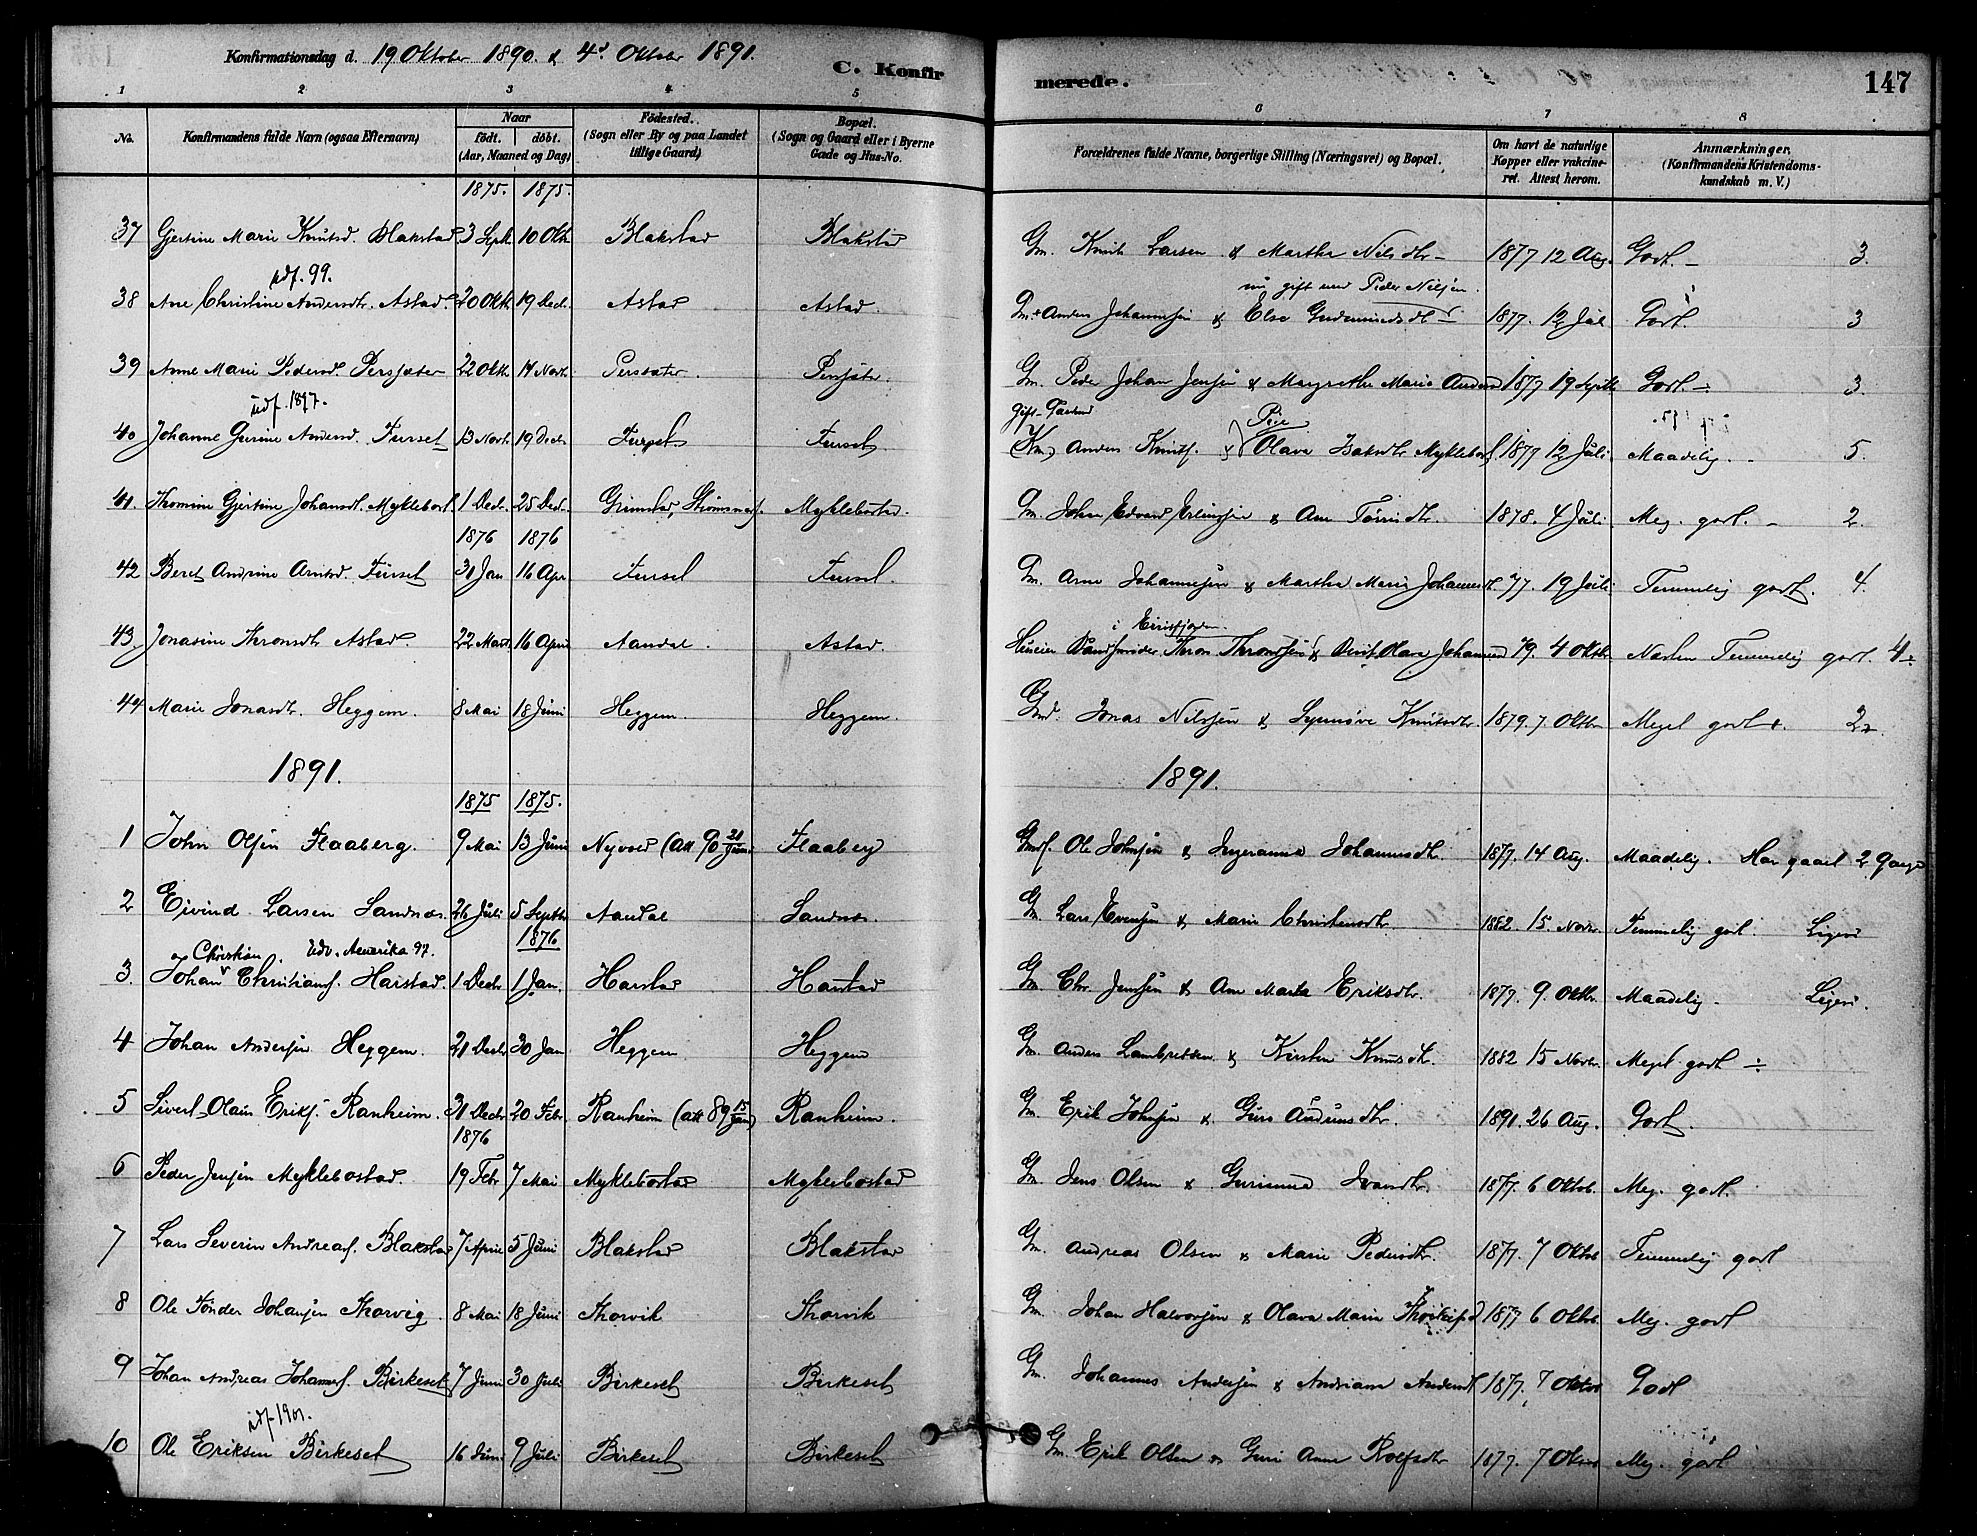 Konfirmationsdag d. 19 Oktober 1890. & 4d Oktober 1891.
C. Konfirmerede.
147
1 2 3 4 5 6 7 8
No. Konfirmandens fulde Navn (ogsaa Efternavn) Naar födt. döbt. (Aar, Maaned og Dag) Födested. (Sogn eller By og paa Landet tillige Gaard) Bopæl. (Sogn og Gaard eller i Byerne Gade og Hus-No. Forældrenes fulde Navne, borgerlige Stilling (Næringsvei) og Bopæl. Om havt de naturlige Kopper eller vakcineret. Attest herom. Anmærkninger. (Konfirmandens Kristendomskundskab m. V.)
1875. 1875.
37 Gjertine Marie Knutsd. Blakstad 3 Sept 10 Okt Blakstad Blakstad Gm. Knut Larsen & Martha Nilsdtr. 1877 12 Aug. Godt. 3.
udf. 99. nu gift med Peder Nilsen.
38 Ane Christine Andersdtr. Astad. 20 Okt. 19 Dec. Astad Astad. Gm. Anders Johannesen & Else Gudmundsdtr 1877. 12 Jul Godt. 3
39 Anne Marie Pedersd. Persæter 22 Okt. 14 Novb. Persæter. Persæter. Gm. Peder Johan Jensen & Margrethe Marie Andersd 1877 19 Septb Godt. 3.
udf. 1897. Gift Pige
40 Johanne Gurine Andersd. Furset 13 Novb. 19 Decb. Furset Furset. (Km) Anders Knuts. & Olava Isaksdtr Myklebost. 1877 12 Juli. Maadelig. 5.
41. Thomine Gjertine Johansdt. Myklebost. 1 Decb. 25 Dec. Grimstad, Strømsnes. Myklebostad. Gm. Johan Edvard Erlingsen & Ane Tørrisdtr. 1878. 4 Juli. Meg. godt. 2.
1876 1876
42 Beret Andrine Arnesd. Furset 31 Jan 16 Apr Furset Furset. Gm. Arne Johannesen & Martha Marie Johannesdt. 77. 19 Juli. Temmelig godt. 4.
i Eirisfjorden
43. Jonasine Thronsdtr Astad. 22 Mars 16 April Aandal. Astad. Huseier Thron Thronsen & Johansd 79. 4 Oktb. Næsten Temmelig godt. 4
44 Marie Jonasdtr. Heggem. 8 Mai 18 Juni Heggem. Heggem. Gmd. Jonas Nilssen & Synnøve Knutsdtr. 1879. 7 Oktbr. Meget godt. 2
1891. 1891.
1875 1875.
1 John Olsen Flaaberg. 9 Mai 13 Juni Nyvold (att 90 21/Juni. Flaaberg Gmf. Ole Johnsen & Ingeranna Johannesdtr. 1877. 14 Aug. Maadelig. Har gaaet 2 Gange
2 Eivind Larsen Sandnes. 26 Juli 5 Septb. Aandal Sandnes. Gm. Lars Evensen & Marie Christensdtr. 1882. 15 Novbr. Temmelig godt. Ligesaa
1876
Christian. Udv. Amerika 97.
3. Johan Christians. Harstad. 1 Decb. 1 Jan. Harstad Harstad Gm Chr. Jenssen & Ane Marta Eriksdtr. 1877. 9. Oktbr. Maadelig. Ligesaa
4 Johan Andersen Heggem. 21 Decb. 30 Jan Heggem Heggem Gm. Anders Lambrektsen & Kirsten Knutsdtr. 1882 15 Novbr. Meget godt ÷
5 Sivert Olaus Eriks. Ranheim. 31 Decb. 20 Febr. Ranheim (att 89 15/Jan) Ranheim. Gm. Erik Johnsen & Guro Amundsdtr. 1891. 26 Aug. Godt.
1876
6 Peder Jensen Myklebostad. 19 Febr 7 Mai Myklebostad Myklebostad Gm Jens Olsen & Gurianna Ivarsdtr. 1877. 6 Oktob. Meg. godt.
7 Lars Severin Andreas. Blakstad 7 April 5 Juni Blakstad Blakstad Gm. Andreas Olsen & Marie Pedersdtr. 1877. 7 Oktob Temmelig godt
8 Ole Tønder Johansen Thorvig. 8 Mai 18 Juni Thorvik Thorvik Gm. Johan Halvorsen & Olava Marie 1877 6 Oktob. Meg. godt
9 Johan Andreas Johannes. Birkeset 7 Juni 30 Juli Birkeset Birkeset Gm. Johannes Andersen & Andriane Andersdt 1877. 7 Oktob Godt
udf. 1901.
10 Ole Eriksen Birkeset 16 Juni 9 Juli Birkeset Birkeset Gm. Erik Olsen & Guri Anne Rolfsdtr 1877. 7 Oktob Meg. godt